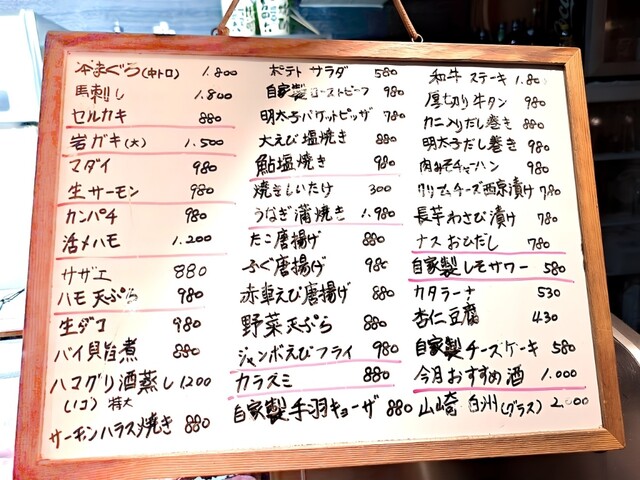 本まぐろ(中トロ) 1.800
馬刺し 1.800
セルカキ 880
岩ガキ(大) 1.500
マダイ 980
生サーモン 980
カンパチ 980
活〆ハモ 1.200
サザエ 880
ハモ天ぷら 980
生ダコ 980
バイ貝旨煮 880
ハマグリ酒蒸し 1200
(1コ) 特大
サーモンハラス焼き 880
ポテトサラダ 580
自家製ローストビーフ 980
明太子バケットピッザ 780
大えび塩焼き 880
鮎塩焼き 980
焼きしいたけ 300
うなぎ蒲焼き 1.980
たこ唐揚げ 880
ふぐ唐揚げ 980
赤車えび唐揚げ 880
野菜天ぷら 880
ジャンボえびフライ 980
カラスミ 880
自家製手羽ギョーザ 880
和牛ステーキ 1.80
厚切り牛タン 980
カニ入りだし巻き 880
明太子だし巻き 980
肉みそチャーハン 980
クリームチーズ西京漬け 780
長芋わさび漬け 780
ナスおひだし 780
自家製レモサワー 580
カタラーナ 530
杏仁豆腐 430
自家製チーズケーキ 580
今月おすすめ酒 1.000
山崎 白州(グラス) 2.000